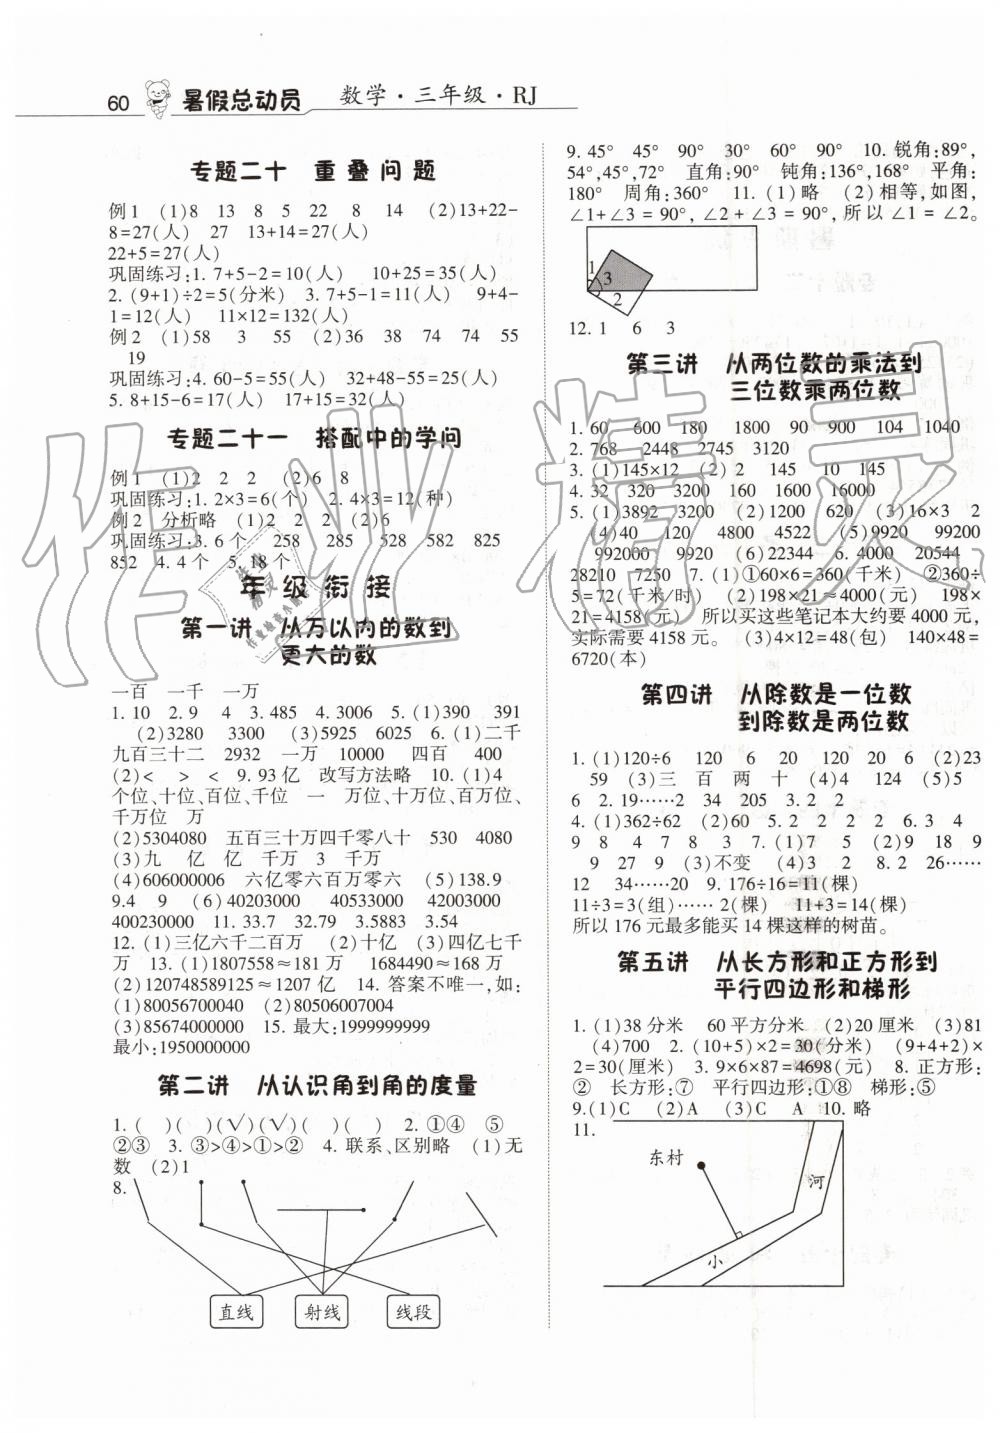 60 暑假总动员 数学·三年级·RJ
专题二十 重叠问题
例1 (1)8 13 8 5 22 8 14 (2)13+22-
8=27(人) 27 13+14=27(人)
22+5=27(人)
巩固练习:1. 7+5-2=10(人) 10+25=35(人)
2. (9+1)÷2=5(分米) 3. 7+5-1=11(人) 9+4-
1=12(人) 11×12=132(人)
例2 (1)58 3 55 (2)36 38 74 74 55
19
巩固练习:4. 60-5=55(人) 32+48-55=25(人)
5. 8+15-6=17(人) 17+15=32(人)
专题二十一 搭配中的学问
例1 (1)2 2 2 (2)6 8
巩固练习:1. 2×3=6(个) 2. 4×3=12(种)
例2 分析略 (1)2 2 2 (2)6
巩固练习:3. 6个 258 285 528 582 825
852 4. 4个 5. 18个
年级衔接
第一讲 从万以内的数到
更大的数
一百 一千 一万
1. 10 2. 9 4 3. 485 4. 3006 5. (1)390 391
(2)3280 3300 (3)5925 6025 6. (1)二千
九百三十二 2932 一万 10000 四百 400
(2)< > < 9. 93亿 改写方法略 10. (1)4
个位、十位、百位、千位 一 万位、十万位、百万位、
千万位 万
(2)5304080 五百三十万四千零八十 530 4080
(3)九 亿 亿 千万 3 千万
(4)606000006 六亿零六百万零六 (5)138.9
9.4 9 (6)40203000 40533000 42003000
400230000 11. 33.7 32.79 3.5883 3.54
12. (1)三亿六千二百万 (2)十亿 (3)四亿七千
万 13. (1)1807558≈181万 1684490≈168万
(2)120748589125≈1207亿 14. 答案不唯一,如:
(1)80056700040 (2)80506007004
(3)85674000000 15. 最大:1999999999
最小:1950000000
第二讲 从认识角到角的度量
1. ( )( )(√)(√)( )( ) 2. ①④ ⑤
②③ 3. ③>④>①>② 4. 联系、区别略 (1)无
数 (2)1
8.
直线 射线 线段
9. 45° 45° 90° 30° 60° 90° 10. 锐角:89°,
54°,45°,72° 直角:90° 钝角:136°,168° 平角:
180° 周角:360° 11. (1)略 (2)相等,如图,
∠1+∠3=90°,∠2+∠3=90°,所以∠1=∠2。
1
3
2
12. 1 6 3
第三讲 从两位数的乘法到
三位数乘两位数
1. 60 600 180 1800 90 900 104 1040
2. 768 2448 2745 3120
3. (1)145×12 (2)2 145 10 145
4. 32 320 3200 160 1600 16000
5. (1)3892 3200 (2)1200 620 (3)16×3 2
(4)40 120 4800 4522 (5)9920 99200
992000 9920 (6)22344 6. 4000 20544
28210 7250 7. (1)①60×6=360(千米) ②360÷
5=72(千米/时) (2)198×21≈4000(元) 198×
21=4158(元) 所以买这些笔记本大约要4000元,
实际需要4158元。 (3)4×12=48(包) 140×48=
6720(本)
第四讲 从除数是一位数
到除数是两位数
1. (1)120÷6 120 6 20 120 20 6 (2)23
59 (3)三 百 两 十 (4)4 124 (5)5
6 2. 19……2 34 205 3. 2 2
4. (1)362÷62 (2)60 5. 2 2 2 2 6. 3 4
9 8 4 7 8 3 7. (1)7 5 (2)9 18 9
9 27 9 (3)不变 (4)3 2 8. 2 26……
12 34……20 9. 176÷16=11(棵)
11÷3=3(组)……2(棵) 11+3=14(棵)
所以176元最多能买14棵这样的树苗。
第五讲 从长方形和正方形到
平行四边形和梯形
1. (1)38分米 60平方分米 (2)20厘米 (3)81
(4)700 2. (10+5)×2=30(分米) (9+4+2)×
2=30(厘米) 3. 9×6×87=4698(元) 8. 正方形:
② 长方形:⑦ 平行四边形:①⑧ 梯形:⑤
9. (1)C (2)A (3)C A 10. 略
11.
东村
河
小
作业精灵